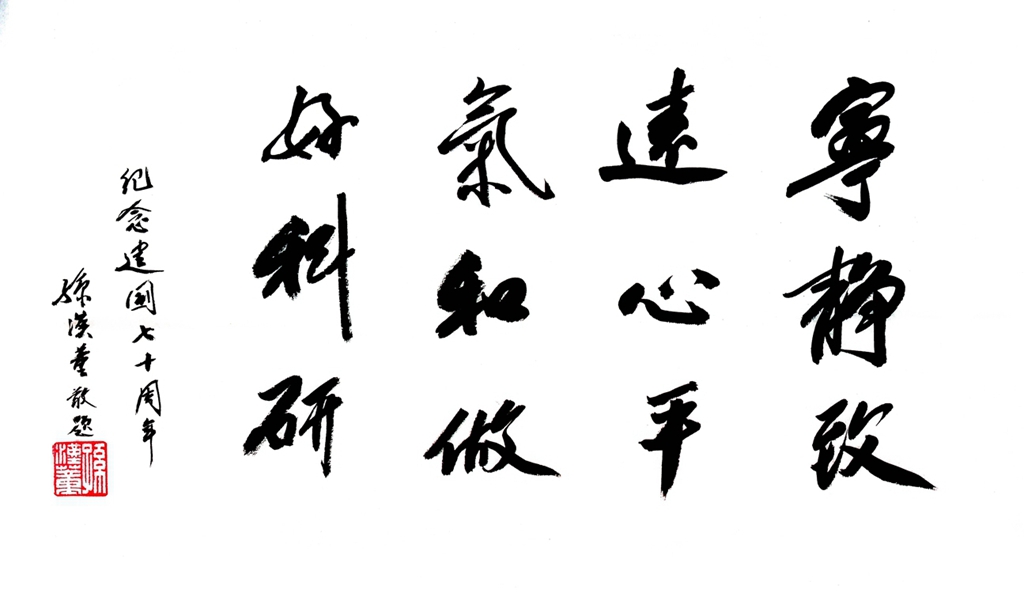 寧静致
遠心平
氣和做
好科研
纪念建国七十周年
孫漢董敬题
孫漢董